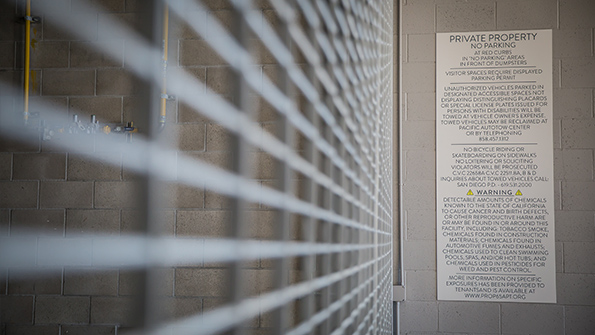 PRIVATE PROPERTY
NO PARKING
AT RED CURBS
IN "NO PARKING" AREAS
IN FRONT OF DUMPSTERS
VISITOR SPACES REQUIRE DISPLAYED
PARKING PERMIT
UNAUTHORIZED VEHICLES PARKED IN
DESIGNATED ACCESSIBLE SPACES NOT
DISPLAYING DISTINGUISHING PLACARDS
OR SPECIAL LICENSE PLATES ISSUED FOR
PERSONS WITH DISABILITIES WILL BE
TOWED AT VEHICLE OWNER'S EXPENSE.
TOWED VEHICLES MAY BE RECLAIMED AT
PACIFIC AUTOTOW CENTER
OR BY TELEPHONING
NO BICYCLE RIDING OR
SKATEBOARDING ON SIDEWALKS
NO LOITERING OR SOLICITING
VIOLATORS WILL BE PROSECUTED
C.V.C 22658A C.V.C 22511.8A, B & D
INQUIRIES ABOUT TOWED VEHICLES CALL:
SAN DIEGO P.D. - 619.531.2000
WARNING
DETECTABLE AMOUNTS OF CHEMICALS
KNOWN TO THE STATE OF CALIFORNIA
TO CAUSE CANCER AND BIRTH DEFECTS,
OR OTHER REPRODUCTIVE HARM ARE
OR MAY BE FOUND IN OR AROUND THIS
FACILITY, INCLUDING: TOBACCO SMOKE,
CHEMICALS FOUND IN CONSTRUCTION
MATERIALS; CHEMICALS FOUND IN
AUTOMOTIVE FUMES AND EXHAUSTS;
CHEMICALS USED TO CLEAN SWIMMING
POOLS, SPAS, AND/OR HOT TUBS; AND
CHEMICALS USED IN PESTICIDES FOR
WEED AND PEST CONTROL.
MORE INFORMATION ON SPECIFIC
EXPOSURES HAS BEEN PROVIDED TO
TENANTS AND IS AVAILABLE AT
WWW.PROP65APT.ORG